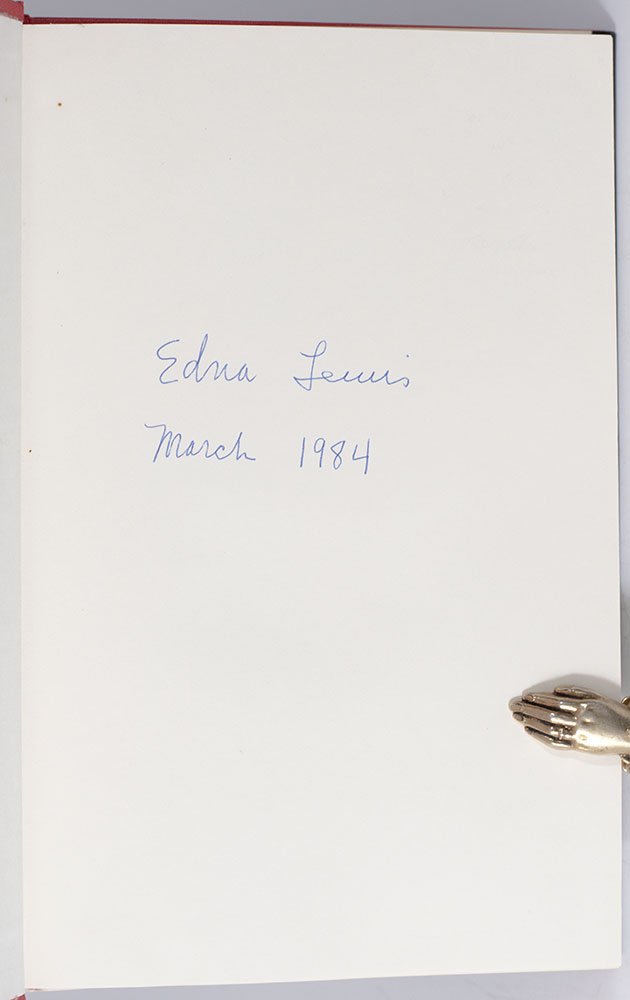 Edna Lewis
March 1984